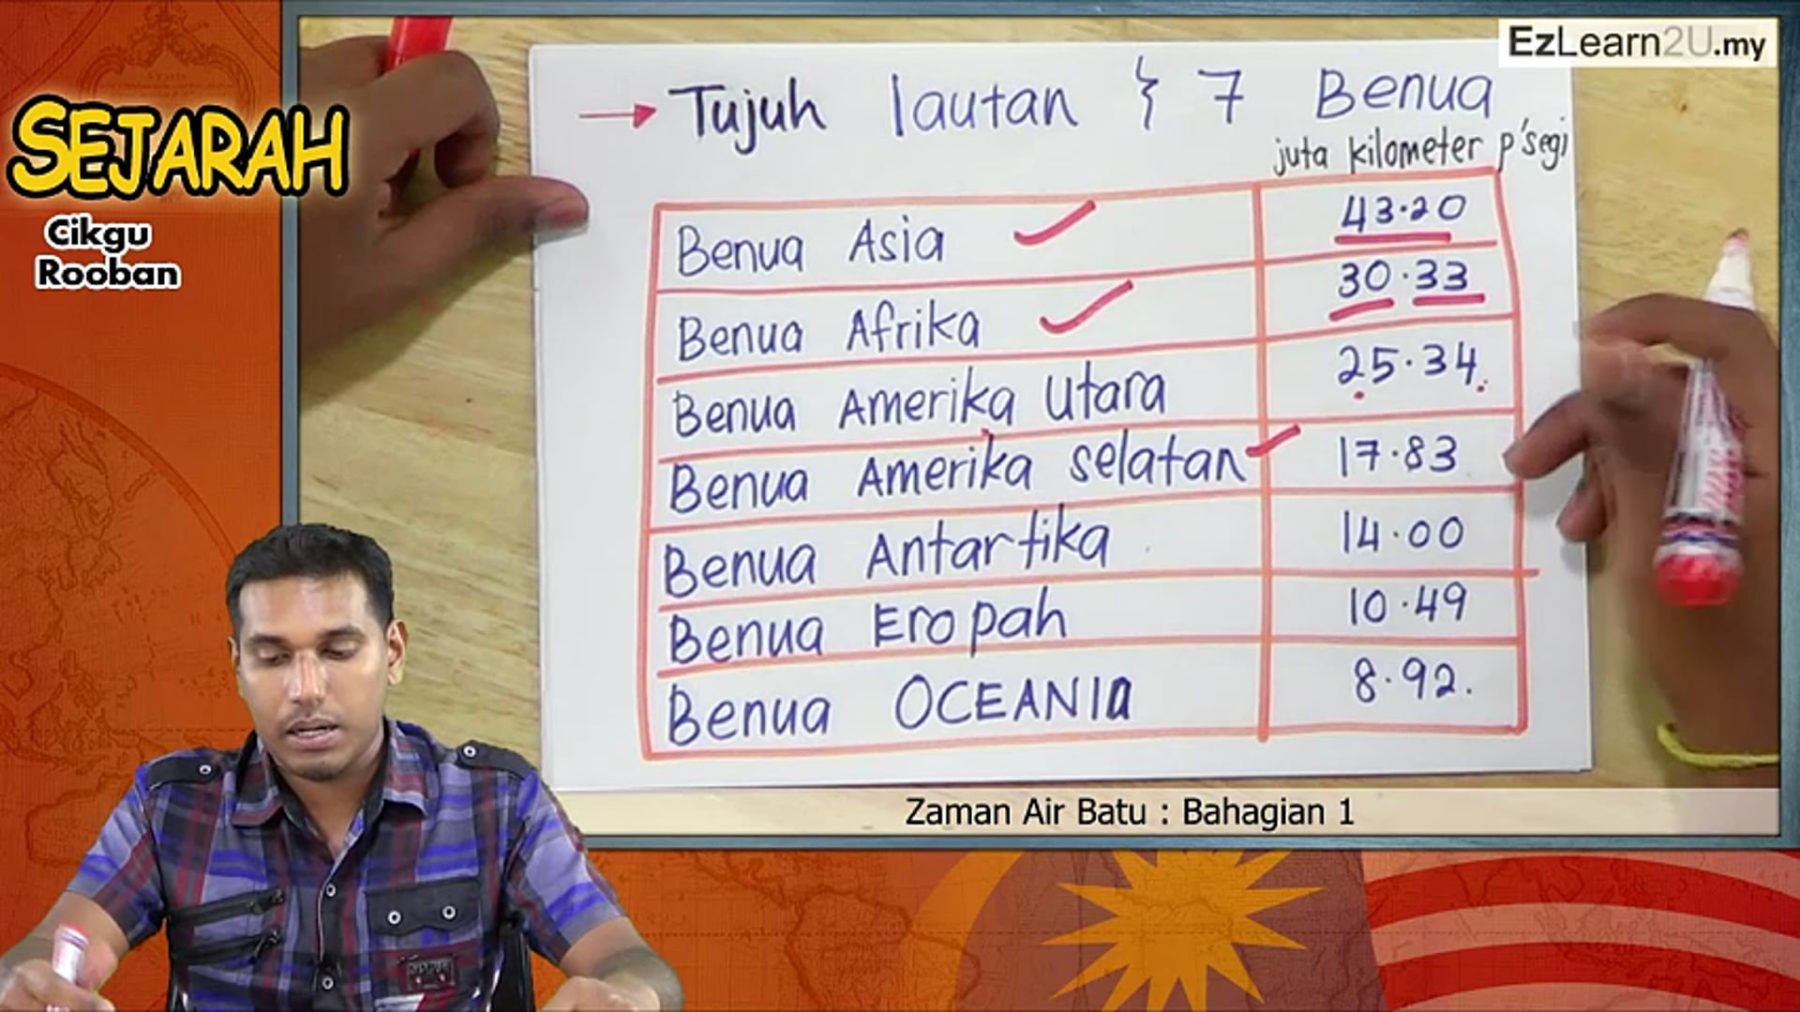 EzLearn2U.my
SEJARAH
Cikgu
Rooban
Tujuh lautan & 7 Benua
juta kilometer p'segi
Benua Asia 43.20
Benua Afrika 30.33
Benua Amerika Utara 25.34
Benua Amerika selatan 17.83
Benua Antartika 14.00
Benua Eropah 10.49
Benua OCEANIa 8.92.
Zaman Air Batu : Bahagian 1